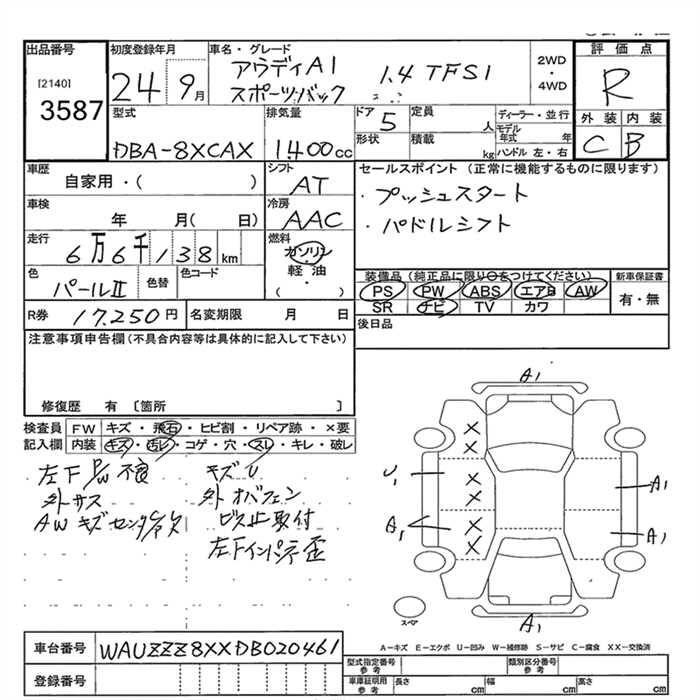 出品番号
[2140]
3587
初度登録年月
24年 9月
車名・グレード
アウディA1 1.4 TFSI
スポーツバック
2WD
・
4WD
評価点
R
外装 内装
C B
型式
DBA-8XCAX
排気量
1400cc
ドア 5
定員 人
形状
積載 kg
ディーラー・並行
モデル年式 年
ハンドル 左・右
車歴
自家用・( )
シフト
AT
車検
年 月( 日)
冷房
AAC
走行
6万6千138km
燃料
ガソリン
・
軽油
・
( )
色
パールⅡ
色替
色コード
R券 17,250円
名変期限 月 日
セールスポイント (正常に機能するものに限ります)
・プッシュスタート
・パドルシフト
装備品 (純正品に限り○をつけてください)
PS PW ABS エアB AW
SR ナビ TV カワ
新車保証書
有・無
後日品
注意事項申告欄(不具合内容等は具体的に記入して下さい)
修復歴 有 〔箇所 〕
検査員記入欄
FW キズ・飛石・ヒビ割・リペア跡・×要
内装 キズ・汚レ・コゲ・穴・スレ・キレ・破レ
左下P/W不良 キズU
外サス 外オバフェン
AWキズセンタ欠 ビス止取付
左下インパネ歪
A1
U1
A1
A1
A1
A1
スペア
A-キズ E-エクボ U-凹み W-補修跡 S-サビ C-腐食 XX-交換済
車台番号 WAUZZZ8XXDB020461
登録番号
型式指定番号 参考
類別区分番号 参考
車庫証明用 参考
長さ cm
幅 cm
高さ cm